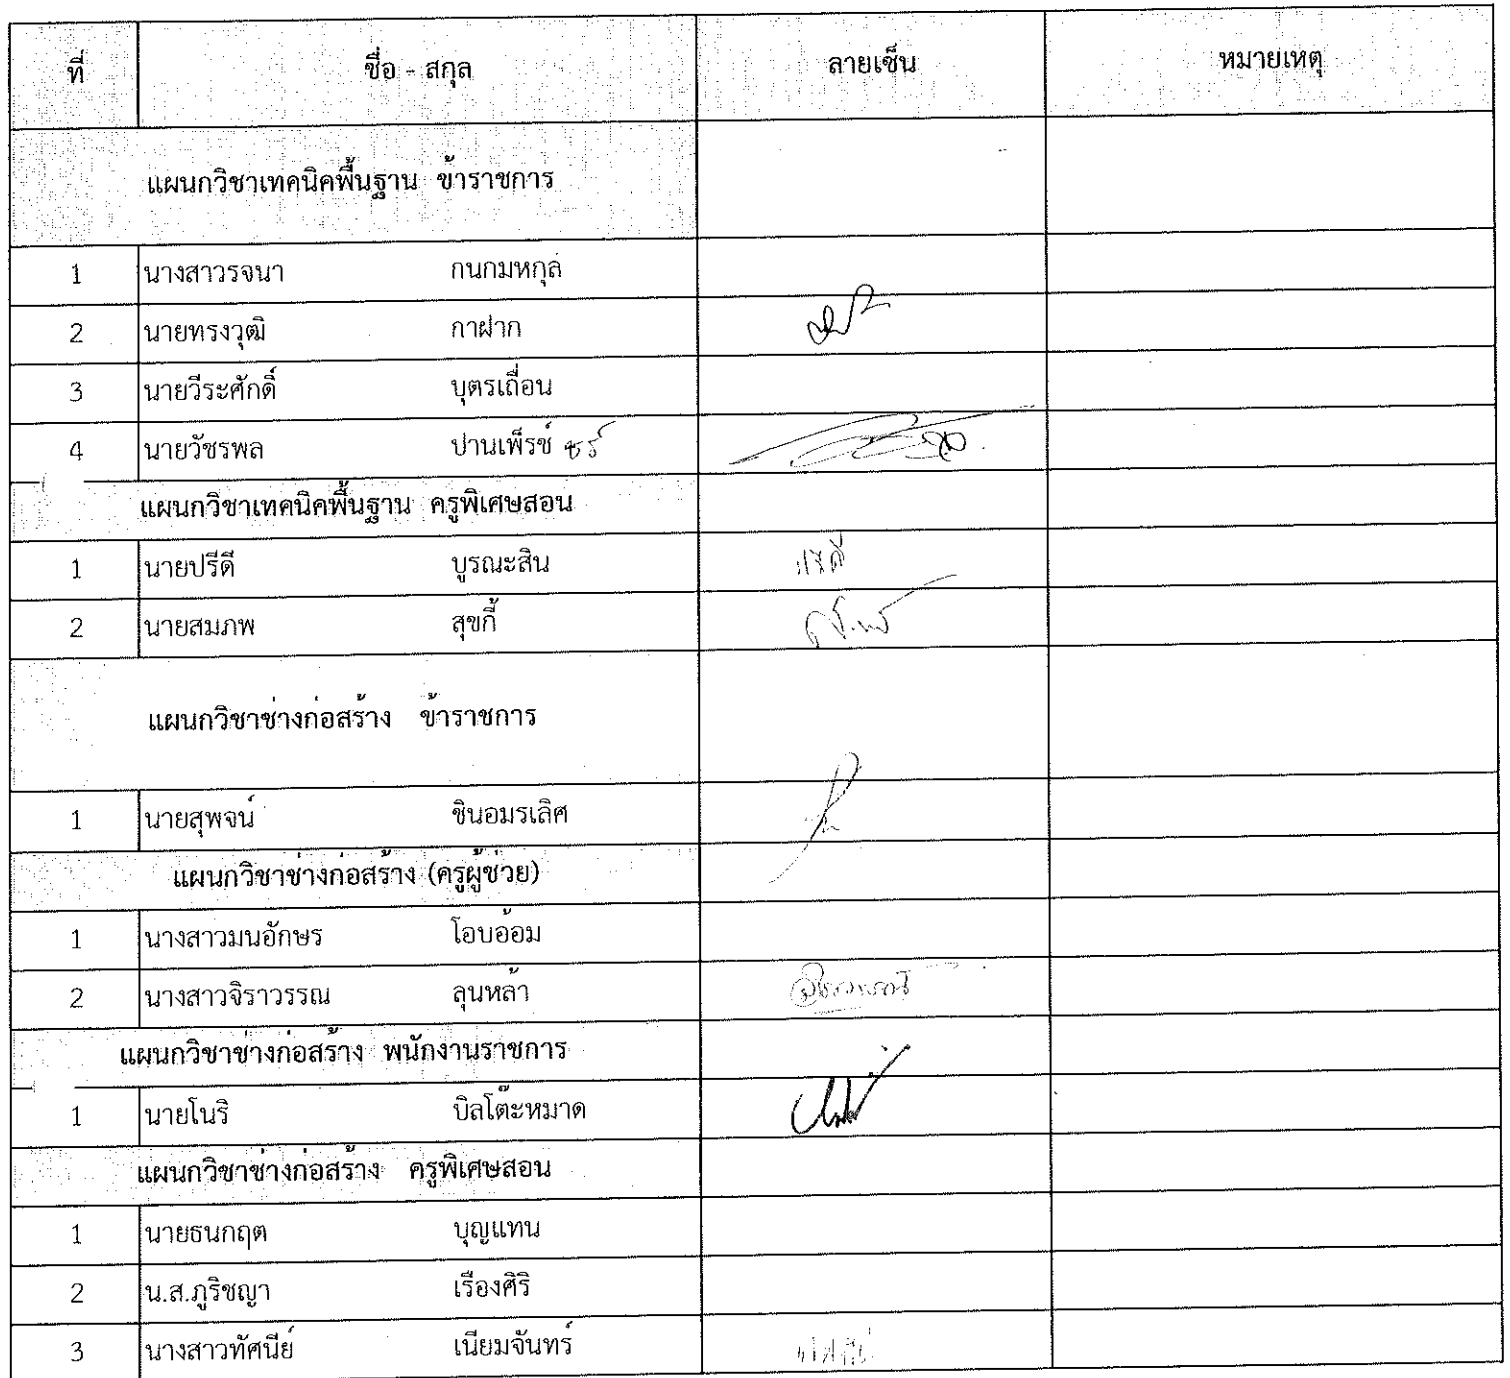 ที่ ชื่อ - สกุล ลายเซ็น หมายเหตุ
แผนกวิชาเทคนิคพื้นฐาน ข้าราชการ
1 นางสาวรจนา กนกมหกุล
2 นายทรงวุฒิ กาฝาก
3 นายวีระศักดิ์ บุตรเถื่อน
4 นายวัชรพล ปานเพ็รช์ ชร์
แผนกวิชาเทคนิคพื้นฐาน ครูพิเศษสอน
1 นายปรีดี บูรณะสิน ปรีดี
2 นายสมภพ สุขกี้
แผนกวิชาช่างก่อสร้าง ข้าราชการ
1 นายสุพจน์ ชินอมรเลิศ
แผนกวิชาช่างก่อสร้าง (ครูผู้ช่วย)
1 นางสาวมนอักษร โอบอ้อม
2 นางสาวจิราวรรณ ลุนหล้า
แผนกวิชาช่างก่อสร้าง พนักงานราชการ
1 นายโนริ บิลโต๊ะหมาด
แผนกวิชาช่างก่อสร้าง ครูพิเศษสอน
1 นายธนกฤต บุญแทน
2 น.ส.ภูริชญา เรืองศิริ
3 นางสาวทัศนีย์ เนียมจันทร์